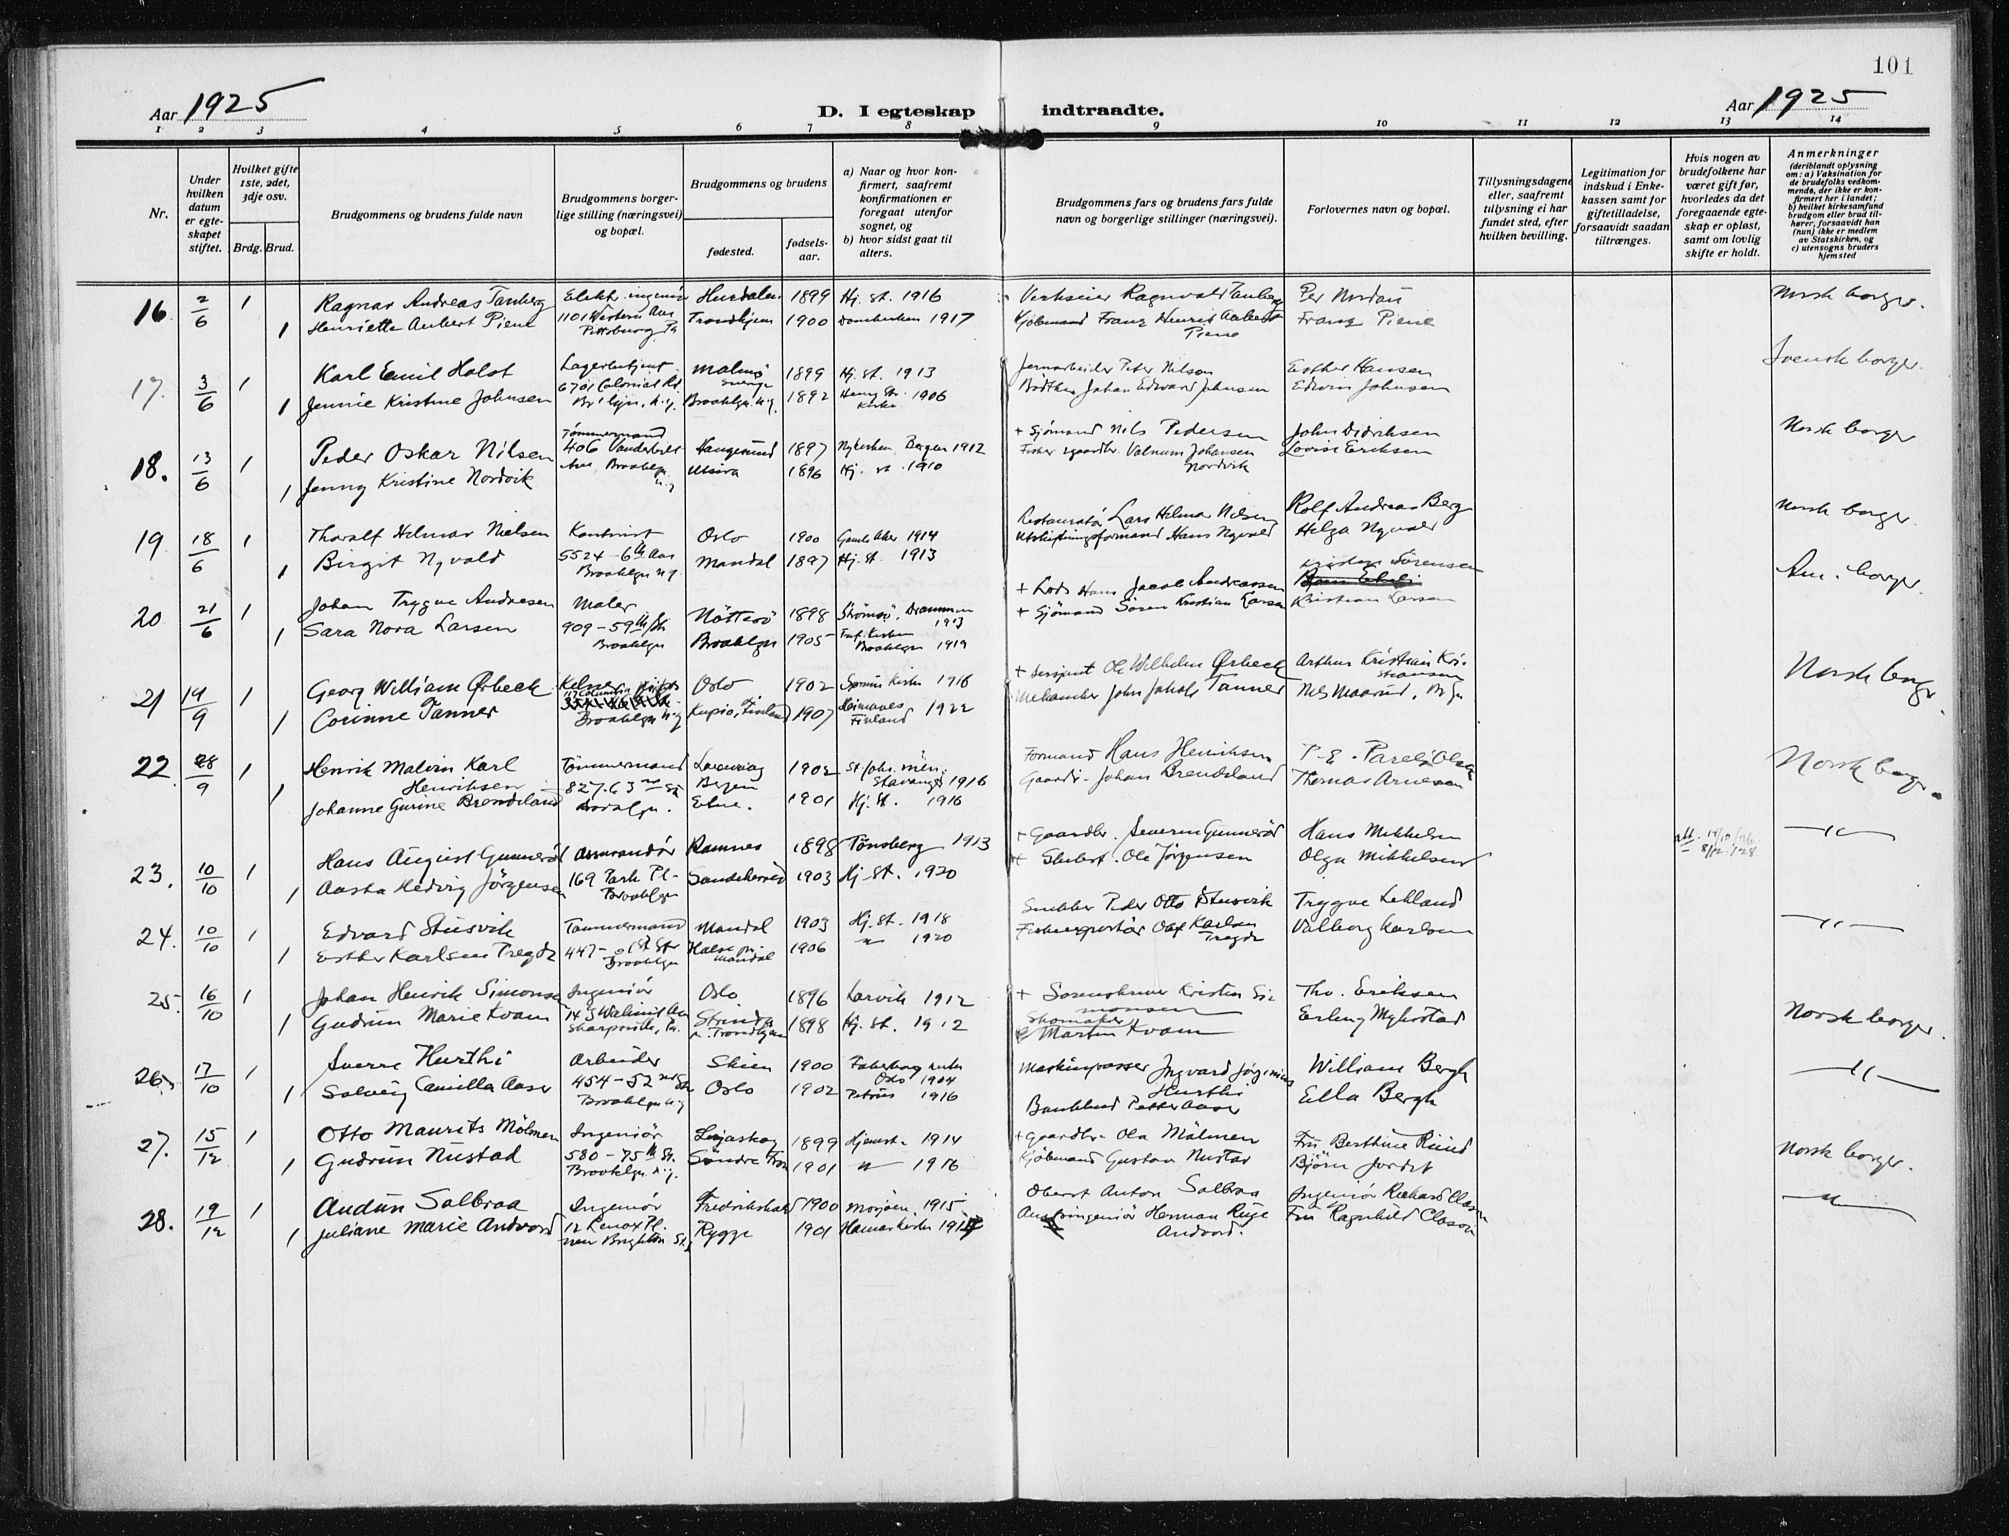 101
Aar 1925
D. I egteskap indtraadte.
Aar 1925
1 2 3 4 5 6 7 8 9 10 11 12 13 14
Nr.
Under hvilken datum er egteskapet stiftet.
Hvilket gifte 1ste, 2det, 3dje osv.
Brdg. Brud.
Brudgommens og brudens fulde navn
Brudgommens borgerlige stilling (næringsvei) og bopæl.
Brudgommens og brudens
fødested.
fødselsaar.
a) Naar og hvor konfirmert, saafremt konfirmationen er foregaat utenfor sognet, og
b) hvor sidst gaat til alters.
Brudgommens fars og brudens fars fulde navn og borgerlige stillinger (næringsvei).
Forlovernes navn og bopæl.
Tillysningsdagene eller, saafremt tillysning ei har fundet sted, efter hvilken bevilling.
Legitimation for indskud i Enkekassen samt for giftetilladelse, forsaavidt saadan tiltrænges.
Hvis nogen av brudefolkene har været gift før, hvorledes da det foregaaende egteskap er opløst, samt om lovlig skifte er holdt.
Anmerkninger
(deriblandt oplysning om: a) Vaksination for de brudefolks vedkommende, der ikke er konfirmert her i landet;
b) hvilket kirkesamfund brudgom eller brud tilhører, forsaavidt han (hun) ikke er medlem av Statskirken, og
c) utensogns bruders hjemsted
16 2/6 1 Ragnar Andreas Tanberg Elektr. ingeniør Hurdalen 1899 Hj. st. 1916 Ragnvald Tanberg Per Nordau Norsk borger.
1 Henriette Aubert Piene 1101 Western Ave Trondhjem 1900 Domkirken 1917 Kjøbmand Franz Henrik Aubert Franz Piene
Pittsburg, Pa Piene
17. 3/6 1 Karl Emil Holst Malmø 1899 Hj. st. 1913 Jernarbeider Peter Nilson Esther Hansen Svensk borger.
Sverige
1 Jennie Kristine Johnsen 6701 Colonial Rd Brooklyn. N.Y. 1892 Henry Str. 1906 Johan Edward Johnsen Edwin Johnsen
Kirke
18. 13/6 1 Peder Oskar Nilsen Tømmermand Haugesund 1897 Nykirken Bergen 1912 + Sjömand Nils Pedersen John Didriksen Norsk borger
406 Vanderbilt Ave, Brooklyn N.Y.
1 Jenny Kristine Nordvik Utsira 1896 Hj. st. 1910 Johansen Nordvik Lovise Eriksen
19 18/6 1 Thoralf Hilmar Nielsen Kontorist Oslo 1900 Gamle Aker 1914 Restauratør Lars Hilmar Nilsen Rolf Andreas Berg Norsk borger.
1 Birgit Nyvold 5524 - 6th Ave Mandal 1897 Hj. st. 1913 Utskiftningsformand Hans Nyvold Helga Nyvold
Brooklyn N.Y.
20 21/6 1 Johan Trygve Andresen Maler Nötterö 1898 Strømsø, Drammen 1913 + Lods Hans Jacob Andreassen Sörensen Am. borger
1 Sara Nora Larsen 909 - 59th St. Brooklyn 1905 Brooklyn 1919 + Sjömand Sören Kristian Larsen Kristian Larsen
Brooklyn
21 19/9 1 Georg William Ørbeck Kelner Oslo 1902 Kirke 1916 + Sersjent Ole Wilhelm Ørbeck Arthur Kristian Kristiansen Norsk borger.
1 Corinne Tanner Brooklyn N.Y. Kupio, Finland 1907 Finland 1922 Mekaniker John Jakob Tanner Nils Maarud
22 28/9 1 Henrik Malvin Karl Henriksen Tømmermand Laksevaag Bergen 1902 St. Joh. men. Stavanger 1916 Formand Hans Henriksen P. E. Norsk borger.
1 Johanne Gurine Brendeland 827.63rd St Brooklyn. Etne. 1901 Hj. St. 1916 Gaardbr. Johan Brendeland Thomas Arnesen
23. 10/10 1 Hans August Gunnerød Ramnes 1898 Tønsberg 1913 + Gaardbr. Severin Gunnerød Hans Mikkelsen —"—
1 Aasta Hedvig Jörgensen 169 Park Pl. Brooklyn Sandeherred 1903 Hj. St. 1920 Ole Jörgensen Olga Mikkelsen
24. 10/10 1 Edvard Stusvik Tømmermand Mandal 1903 Hj. st. 1918 Snekker Peder Otto Stusvik Trygve Lehland —"—
1 Esther Karlsen Tregde Brooklyn Halse pr. Mandal 1906 —"— 1920 Olaf Karlsen Tregde Valborg Karlsen
25. 16/10 1 Johan Henrik Simonsen Ingeniør Oslo 1896 Larvik 1912 + Sorenskriver Kristen Simonsen Thv. Eriksen
1 Gudrun Marie Kvam Sharpsville, Pa. Strinda n. Trondhjem 1898 Hj. St. 1912 Skomaker Martin Kvam Erling Myhrstad Norsk borger.
26. 17/10 1 Sverre Hurthi Arbeider Skien 1900 Oslo 1904 Maskinpasser Ingvard Jörginius Hurthi William Bergh —"—
1 Solveig Camilla Aaser 454 - 52nd St. Brooklyn N.Y. Oslo 1902 Petrus 1916 Petter Aaser Ella Bergh
27. 15/12 1 Otto Maurits Mölmen Ingeniør Lesjaskog 1899 Hjemst. 1914 + Gaardbr. Ola Mölmen Fru Berthine Ruud Norsk borger.
1 Gudrun Nustad 580 - 75th St. Brooklyn. N.Y. Söndre Fron 1901 —"— 1916 Kjøbmand Gustav Nustad Björn Jordet
28. 19/12 1 Audun Solbraa Ingeniør Fredrikshald 1900 Mosjøen 1915 Oberst Anton Solbraa Ingeniør Richard Clason —"—
1 Juliane Marie Andvord 12 Lenox Pl. New Brighton St. Rygge 1901 Hamar Herman Ruge Andvord. Fru Ragnhild Clason